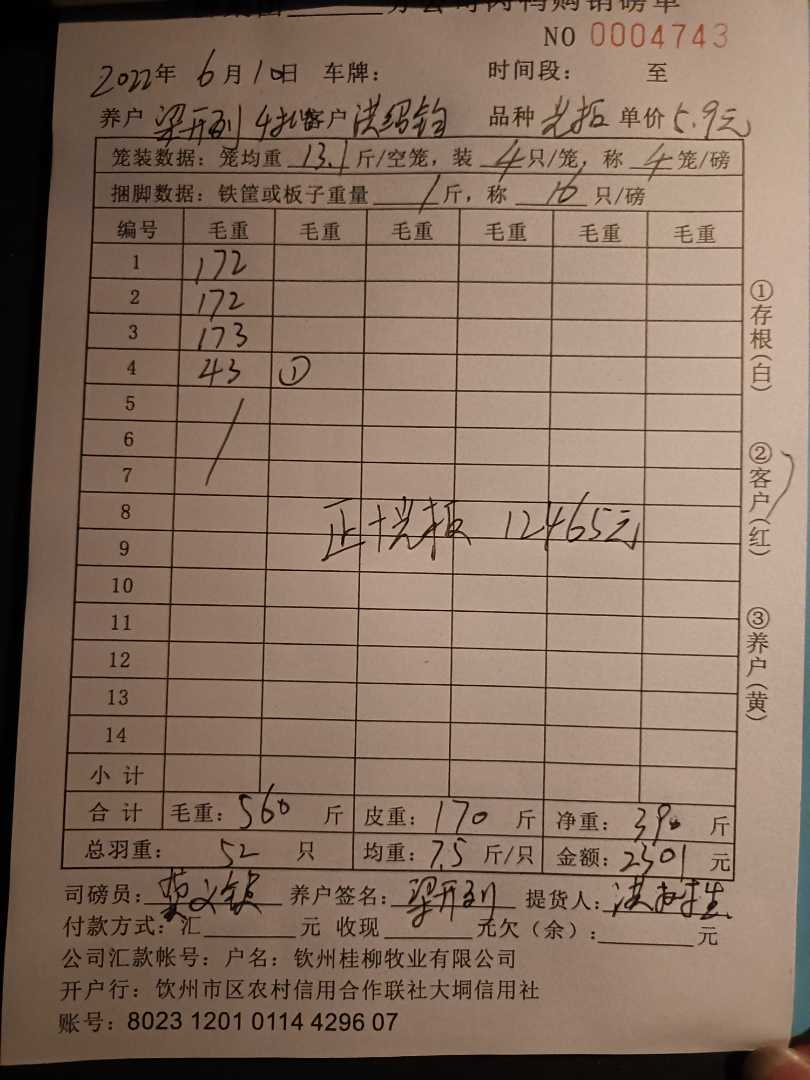 分公司肉鸭购销磅单
NO 0004743
2022年 6月10日 车牌: 时间段: 至
养户 梁开列 4批 客户 洪绍 品种 光板 单价 5.9元
笼装数据: 笼均重 13.1 斤/空笼, 装 4 只/笼, 称 4 笼/磅
捆脚数据: 铁筐或板子重量 / 斤, 称 16 只/磅
编号 毛重 毛重 毛重 毛重 毛重 毛重
1 172
2 172
3 173
4 43 ①
5
6
7
8
正十光板 12465元
9
10
11
12
13
14
小计
合计 毛重: 560 斤 皮重: 170 斤 净重: 390 斤
总羽重: 52 只 均重: 7.5 斤/只 金额: 2301 元
司磅员: 养户签名: 梁开列 提货人: 洪
付款方式: 汇 元 收现 元欠(余): 元
公司汇款帐号: 户名: 钦州桂柳牧业有限公司
开户行: 钦州市区农村信用合作联社大垌信用社
账号: 8023 1201 0114 4296 07
①存根(白)
②客户(红)
③养户(黄)